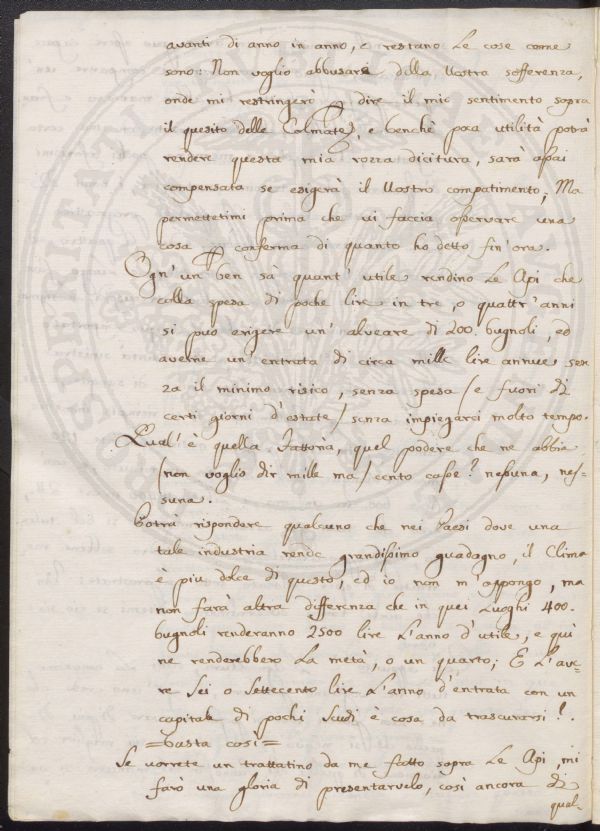 avanti di anno in anno, e restano le cose come
sono: Non voglio abbusare della Vostra sofferenza,
onde mi restringerò p dire il mio sentimento sopra
il quesito delle Colmate, e benchè poca utilità potrà
rendere questa mia rozza dicitura, sarà assai
compensata se esigerà il Vostro compatimento; Ma
permettetimi prima che vi faccia osservare una
cosa p conferma di quanto ho detto fin' ora.
Ogn' un ben sà quant' utile rendino le Api che
colla spesa di poche lire in tre, o quattr' anni
si può erigere un' alveare di 200. bugnoli, ed
averne un' entrata di circa mille lire annue sen
za il minimo risico, senza spesa (e fuori di
certi giorni d'estate) senza impiegarci molto tempo.
Qual' è quella Fattoria, quel podere che ne abbia
(non voglio dir mille ma) cento casse? nessuna, nes=
suna.
Potrà rispondere qualcuno che nei Paesi dove una
tale industria rende grandissimo guadagno, il Clima
è piu dolce di questo, ed io non m' oppongo, ma
non farà altra differenza che in quei Luoghi 400.
bugnoli renderanno 2500 lire l'anno d'utile, e quì
ne renderebbero la metà, o un quarto; E l'ave=
re sei o settecento lire l'anno d'entrata con un
capitale di pochi scudi è cosa da trascurarsi?.
=basta così=
Se vorrete un trattatino da me fatto sopra le Api, mi
farò una gloria di presentarvelo, così ancora di
qual=
PROSPERITATI PUBLICAE AUGENDAE